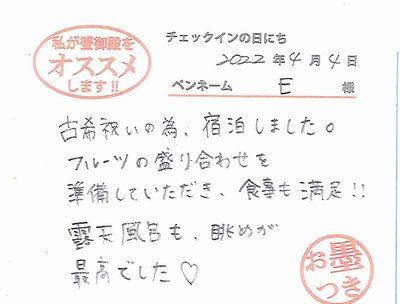 私が蟹御殿を
オススメ
します!!
チェックインの日にち
2022年4月4日
ペンネーム E 様
古希祝いの為、宿泊しました。
フルーツの盛り合わせを
準備していただき、食事も満足!!
露天風呂も、眺めが
最高でした♡
お墨
つき